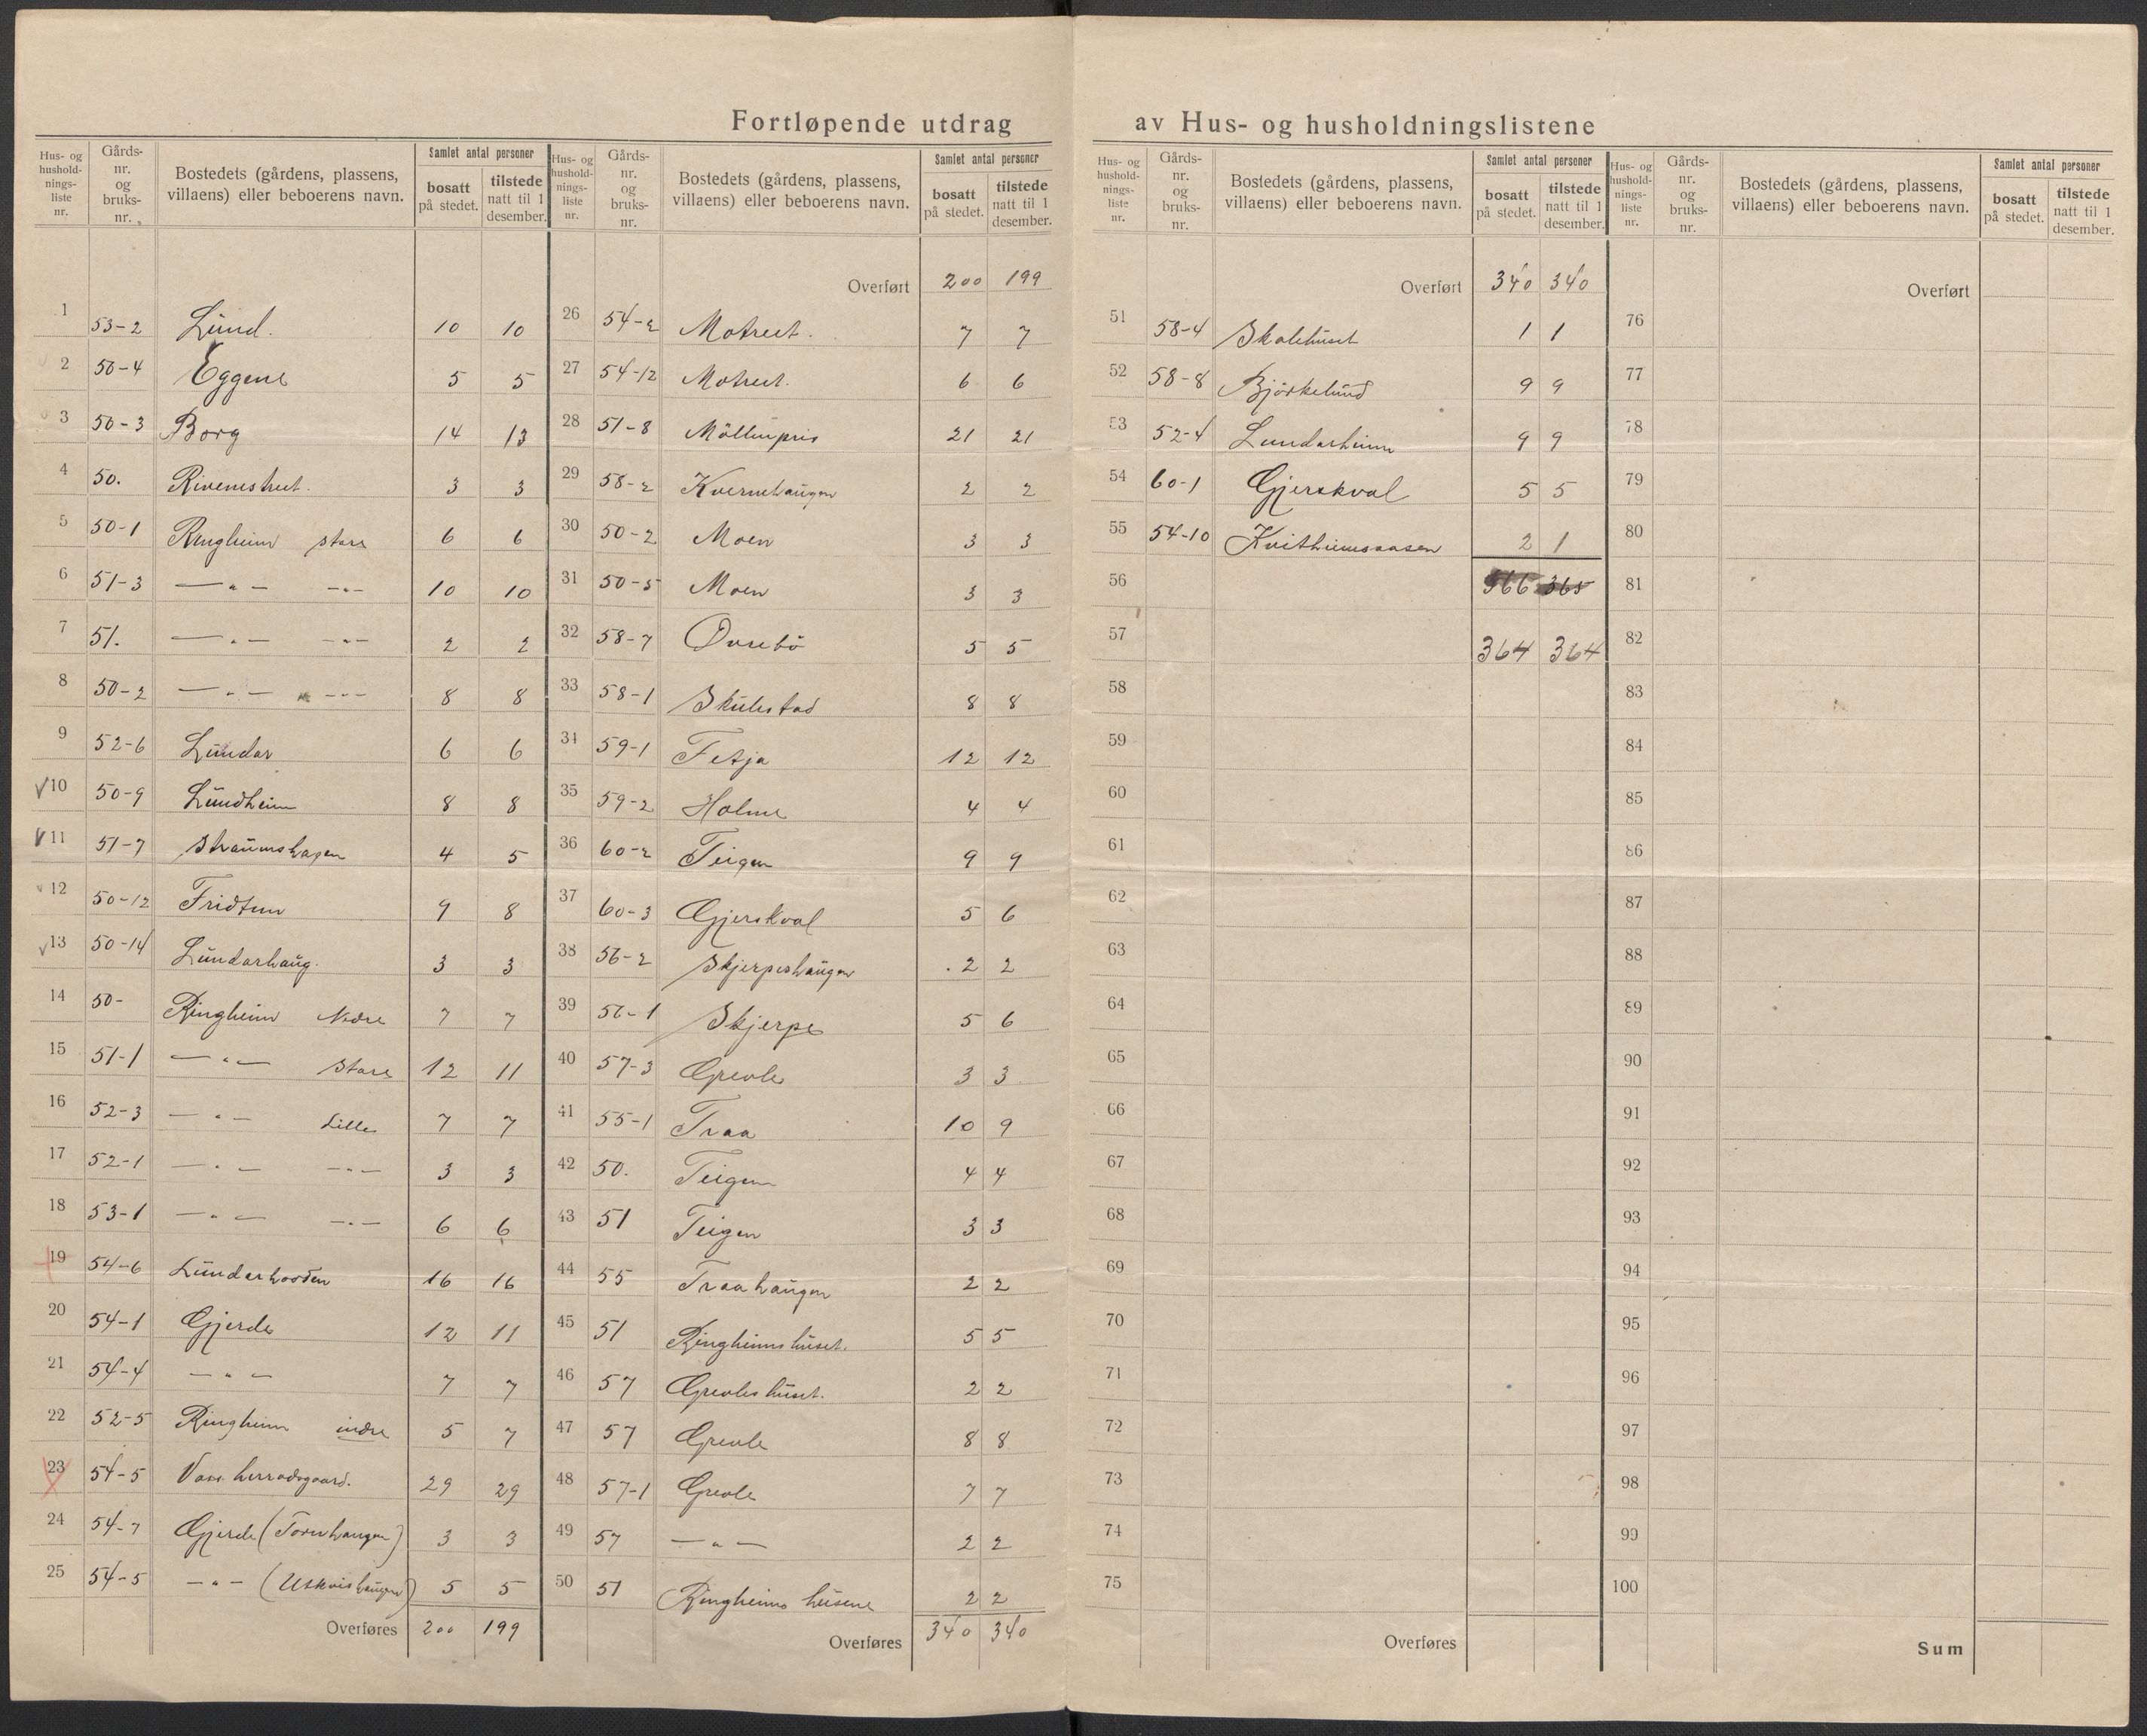 Fortløpende utdrag av Hus- og husholdningslistene
Hus- og husholdnings-liste nr. Gårds-nr. og bruks-nr. Bostedets (gårdens, plassens, villaens) eller beboerens navn. Samlet antal personer bosatt på stedet. tilstede natt til 1 desember.
1 53-2 Lund. 10 10
2 50-4 Eggene 5 5
3 50-3 Borg 14 13
4 50. 3 3
5 50-1 Ringheim store 6 6
6 51-3 —"— -"- 10 10
7 51. —"— -"- 2 2
8 50-2 —"— -"- 8 8
9 52-6 Lundar 6 6
10 50-9 Lundheim 8 8
11 51-7 Straumshagen 4 5
12 50-12 Fridtun 9 8
13 50-14 Lundarhaug. 3 3
14 50- Ringheim Nedre 7 7
15 51-1 —"— Store 12 11
16 52-3 —"— Lille 7 7
17 52-1 —"— -"- 3 3
18 53-1 —"— -"- 6 6
19 54-6 Lundarhooden 16 16
20 54-1 Gjerde 12 11
21 54-4 —"— 7 7
22 52-5 Ringheim indre 5 7
23 54-5 Voss herradsgaard. 29 29
24 54-7 Gjerde (Tornhaugen) 3 3
25 54-5 -"- (Utkvishaugen) 5 5
Overføres 200 199
Hus- og husholdnings-liste nr. Gårds-nr. og bruks-nr. Bostedets (gårdens, plassens, villaens) eller beboerens navn. Samlet antal personer bosatt på stedet. tilstede natt til 1 desember.
Overført 200 199
26 54-2 Motreet. 7 7
27 54-12 Motreet. 6 6
28 51-8 Möllenpris 21 21
29 58-2 Kvernehaugen 2 2
30 50-2 Moen 3 3
31 50-5 Moen 3 3
32 58-7 Övsebö 5 5
33 58-1 Skulestad 8 8
34 59-1 Fetja 12 12
35 59-2 Holme 4 4
36 60-2 Teigen 9 9
37 60-3 Gjerskval 5 6
38 56-2 Skjerpeshaugen 2 2
39 56-1 Skjerpe 5 6
40 57-3 Grevle 3 3
41 55-1 Traa 10 9
42 50. Teigen 4 4
43 51 Teigen 3 3
44 55 Traahaugen 2 2
45 51 Ringheimshuset. 5 5
46 57 Grevleshuset. 2 2
47 57 Grevle 8 8
48 57-1 Grevle 7 7
49 57 —"— 2 2
50 51 Ringheims husene 2 2
Overføres 340 340
Hus- og husholdnings-liste nr. Gårds-nr. og bruks-nr. Bostedets (gårdens, plassens, villaens) eller beboerens navn. Samlet antal personer bosatt på stedet. tilstede natt til 1 desember.
Overført 340 340
51 58-4 Skolehuset 1 1
52 58-8 Björkelund 9 9
53 52-4 Lundarheim 9 9
54 60-1 Gjerskval 5 5
55 54-10 Kvitheimsaasen 2 1
56 366 365
57 364 364
58
59
60
61
62
63
64
65
66
67
68
69
70
71
72
73
74
75
Overføres
Hus- og husholdnings-liste nr. Gårds-nr. og bruks-nr. Bostedets (gårdens, plassens, villaens) eller beboerens navn. Samlet antal personer bosatt på stedet. tilstede natt til 1 desember.
Overført
76
77
78
79
80
81
82
83
84
85
86
87
88
89
90
91
92
93
94
95
96
97
98
99
100
Sum